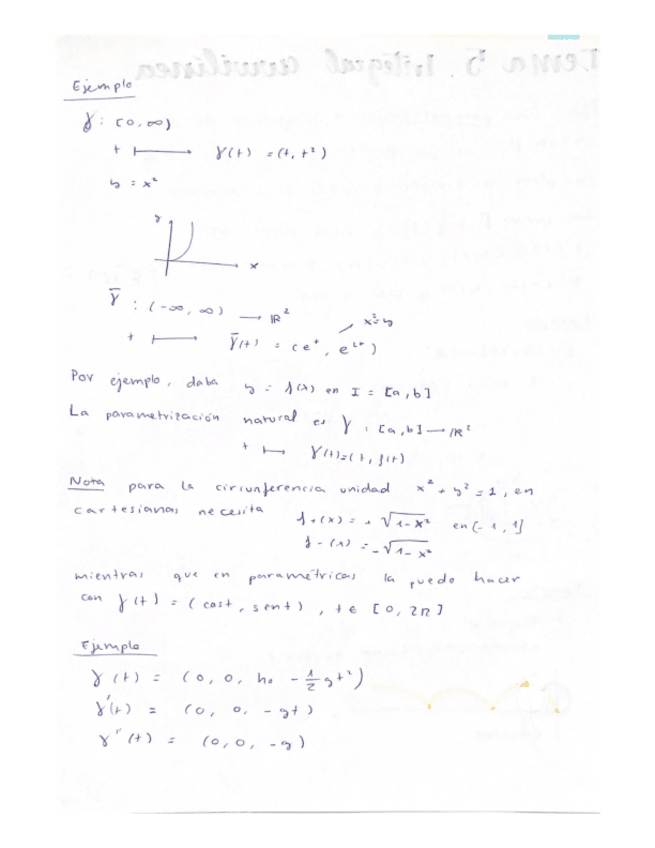 Ejemplo
γ : [0, ∞)
t ⟼ γ(t) = (t, t²)
y = x²
y
x
γ̄ : (-∞, ∞) ⟶ ℝ²
x² = y
t ⟼ γ̄(t) = (eᵗ, e²ᵗ)
Por ejemplo, daba y = f(x) en I = [a, b]
La parametrización natural es γ : [a, b] ⟶ ℝ²
t ⟼ γ(t) = (t, f(t))
Nota para la circunferencia unidad x² + y² = 1, en
cartesianas necesita f+(x) = + √1-x² en [-1, 1]
f-(x) = -√1-x²
mientras que en paramétricas la puedo hacer
con γ(t) = (cost, sent), t ∈ [0, 2π]
Ejemplo
γ(t) = (0, 0, h₀ - ½gt²)
γ'(t) = (0, 0, -gt)
γ''(t) = (0, 0, -g)